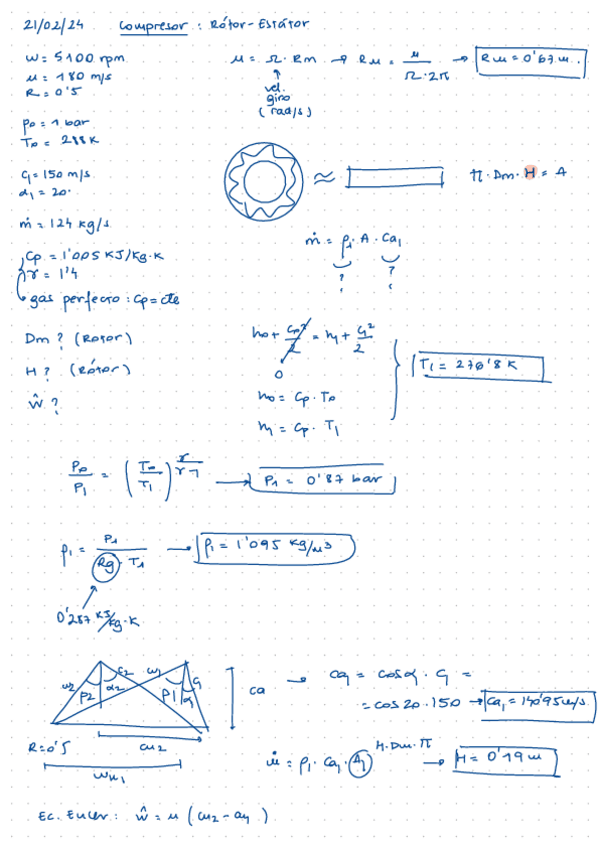 21/02/24 Compresor : Rótor-Estátor
w = 5100 rpm
u = 180 m/s
R = 0'5
u = Ω · Rm → Rm = u / Ω·2π → Rm = 0'67 m.
vel. giro (rad/s)
P0 = 1 bar
T0 = 288 K
C1 = 150 m/s
α1 = 20·
≈ π · Dm · H = A
ṁ = 124 kg/s
ṁ = ρ1 · A · Ca1
? ?
Cp = 1'005 KJ/kg·K
γ = 1'4
gas perfecto : Cp = cte
Dm ? (Rotor)
H ? (Rótor)
ŵ ?
h0 + C0²/2 = h1 + C1²/2
0
h0 = Cp · T0
h1 = Cp · T1
T1 = 276'8 K
P0/P1 = (T0/T1)^(γ/γ-1) → P1 = 0'87 bar
ρ1 = P1 / Rg · T1 → ρ1 = 1'095 kg/m3
0'287 KJ/kg·K
w2 β2 α2 C2 w1 β1 α1 C1
Ca
→ Ca1 = cosα · C1 =
= cos 20 · 150 → Ca1 = 140'95 m/s.
R = 0'5
Cu2
Wu1
ṁ = ρ1 · Ca1 · A1 H·Dm·π → H = 0'19 m
Ec. Euler : ŵ = u (Cu2 - Cu1)